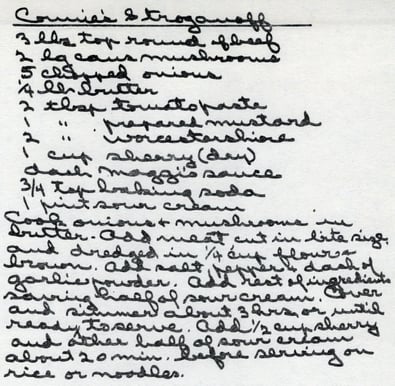 Connie's Stroganoff
3 lbs top round of beef
2 lg cans mushrooms
5 chopped onions
1/4 lb butter
2 tbsp tomato paste
1 " prepared mustard
2 " worcestershire
1 cup sherry (dry)
dash maggi's sauce
3/4 tsp baking soda
1 pint sour cream
Cook onions + mushrooms in
butter. Add meat cut in bite size
and dredged in 1/4 cup flour +
brown. Add salt, pepper + dash of
garlic powder. Add rest of ingredients
saving half of sour cream. Cover
and simmer about 3 hrs, or until
ready to serve. Add 1/2 cup sherry
and other half of sour cream
about 20 min. before serving on
rice or noodles.